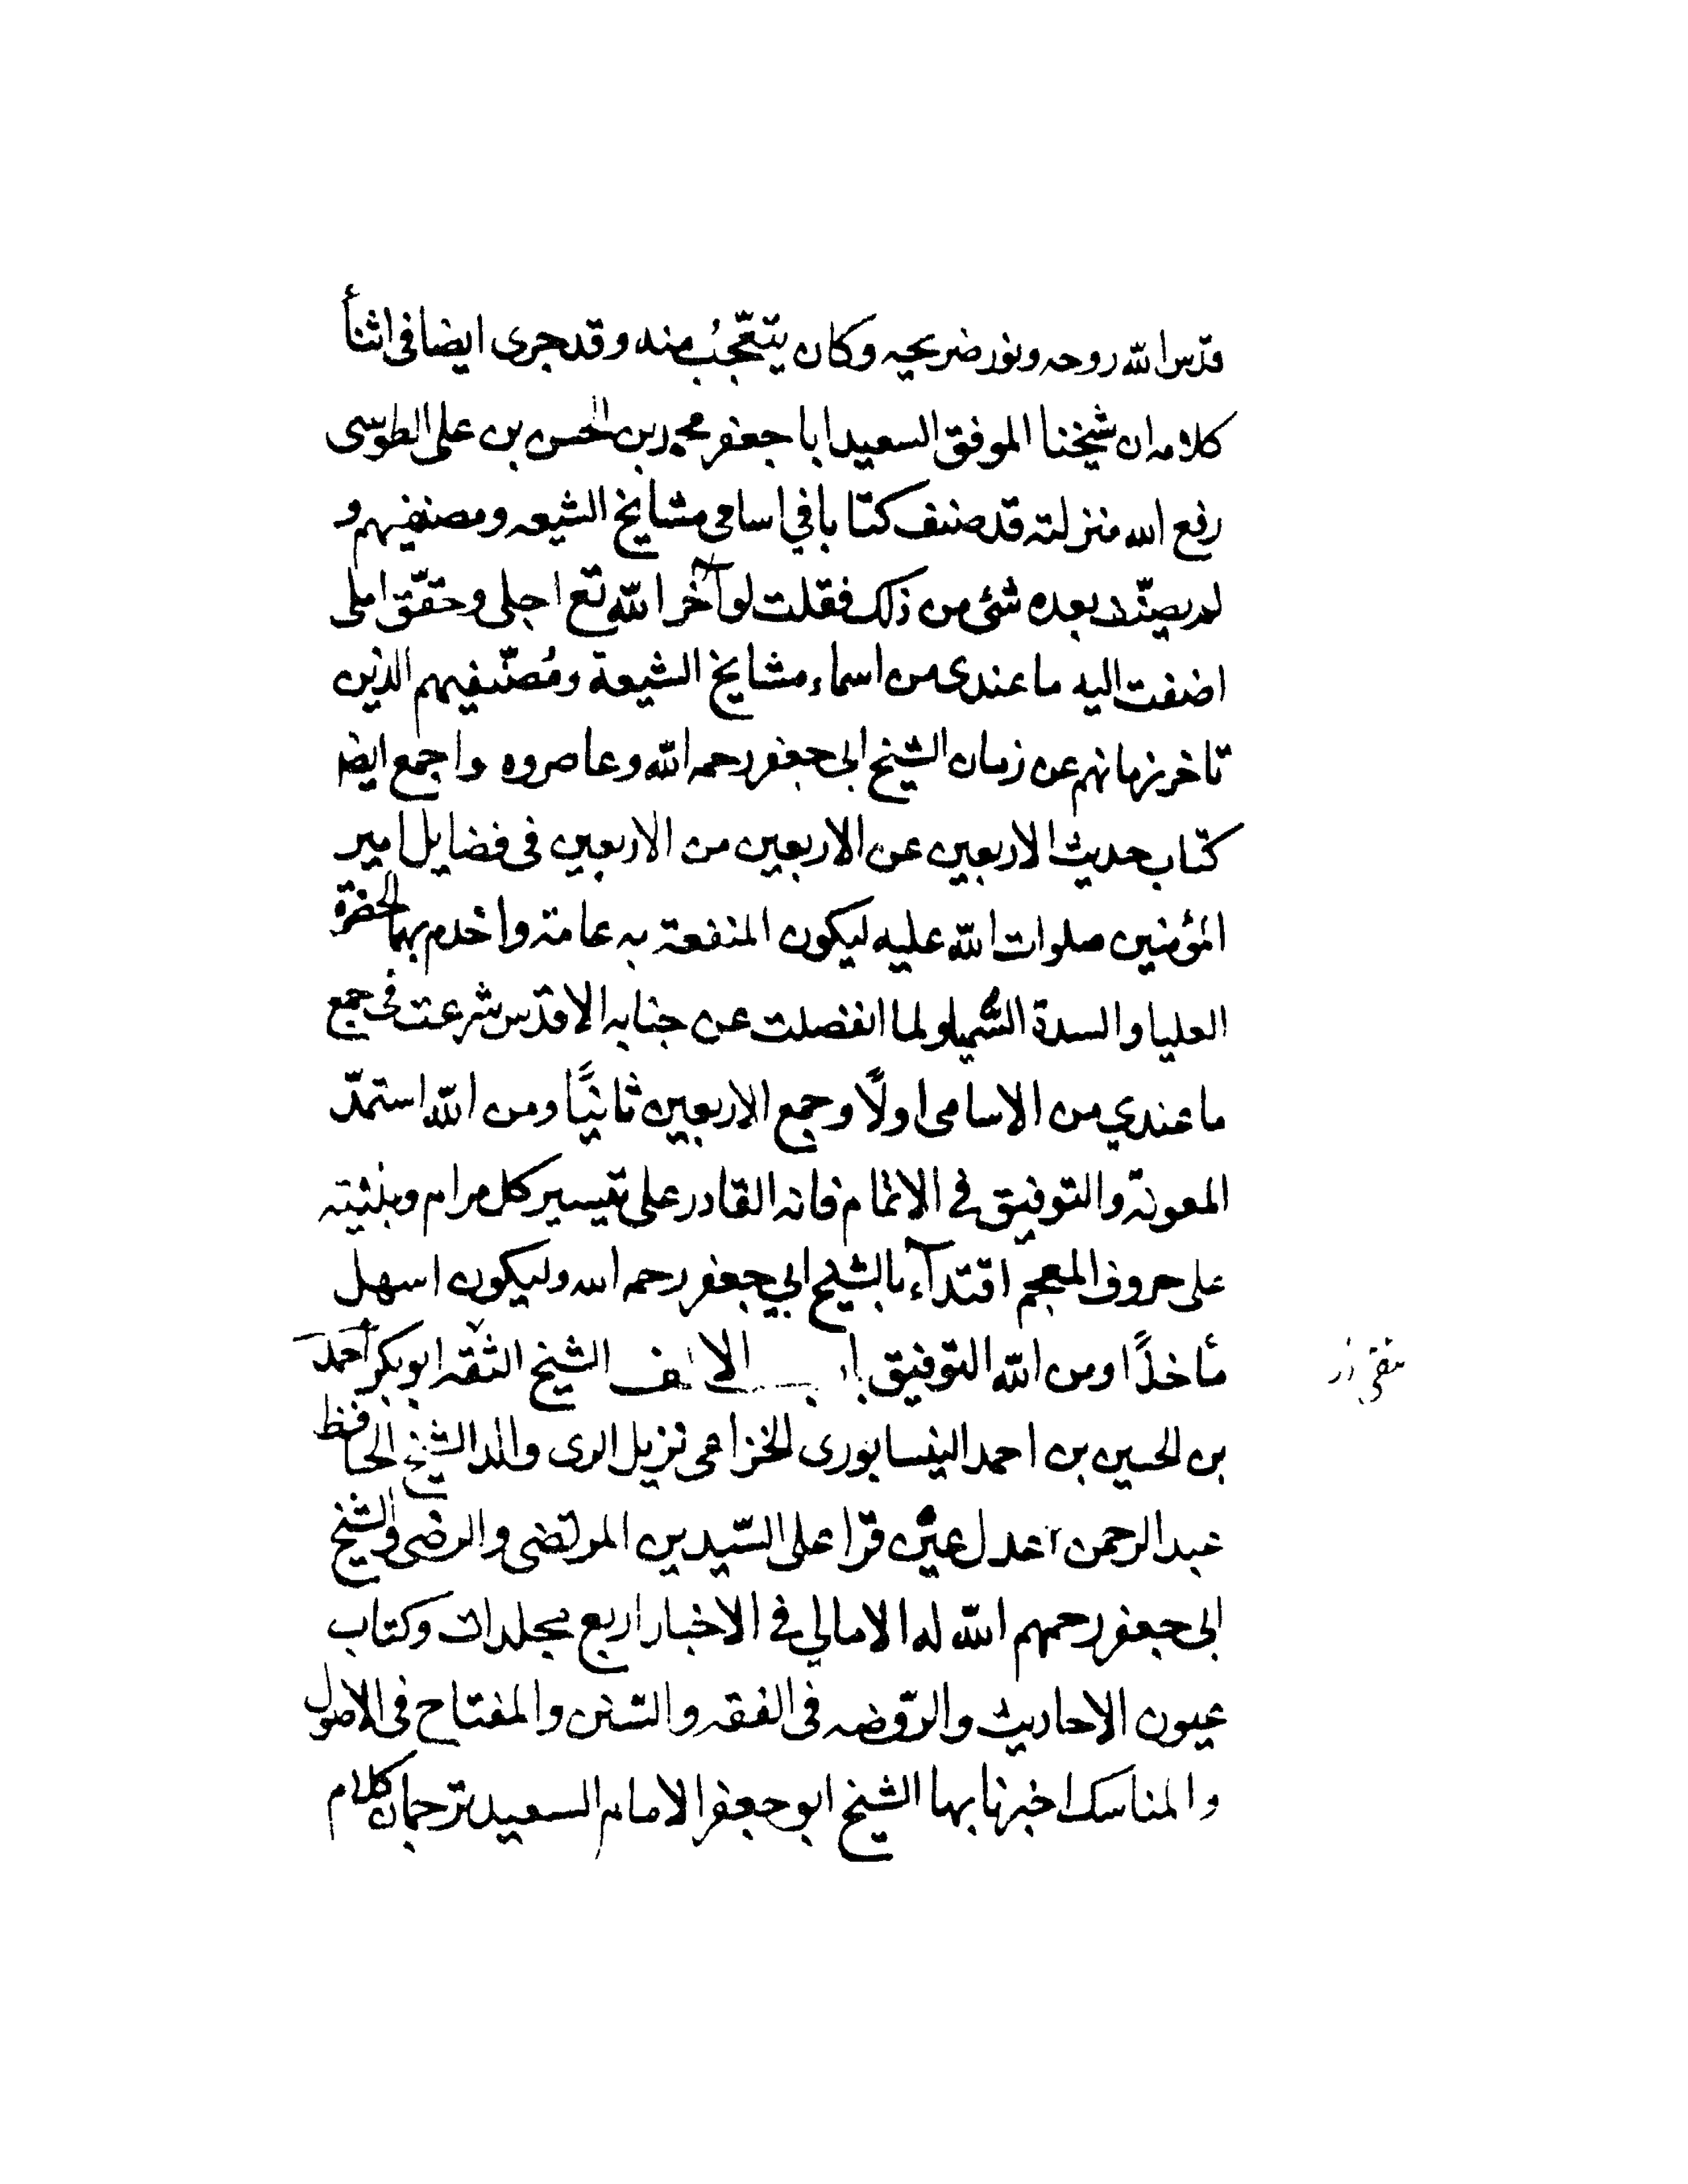 قدس الله روحه ونور ضريحه وكان يتعجّبُ منه وقد جرى ايضا فى اثنأ
كلامه ان شيخنا الموفق السعيد ابا جعفر محمد بن الحسن بن على الطوسى
رفع الله منزلته قد صنف كتابا في اسامى مشايخ الشيعه ومصنفيهم و
لم يصنّف بعده شئ من ذلك فقلت لو آخر الله تع اجلى وحقّق املى
اضفت اليه ما عندى من اسماء مشايخ الشيعة ومُصنّفيهم الذين
تاخر زمانهم عن زمان الشيخ ابى جعفر رحمه الله وعاصروه واجمع ايضا
كتاب حديث الاربعين عن الاربعين من الاربعين فى فضايل امير
المؤمنين صلوات الله عليه ليكون المنفعة به عامة واخدم بهما الحضرة
العليا والسدة الشماء ولما انفصلت عن جنابه الاقدس شرعت فى جمع
ما عندي من الاسامى اولًا وجمع الاربعين ثانيًا ومن الله استمدّ
المعونة والتوفيق في الاتمام فانه القادر على تيسير كل مرام وبنيته
على حروف المعجم اقتدآء بالشيخ ابي جعفر رحمه الله وليكون اسهل
مأخذًا ومن الله التوفيق باب الالف الشيخ الثقه ابو بكر احمد
بن الحسين بن احمد النيسابورى الخزاعى نزيل الرى والد الشيخ الحافظ
عبد الرحمن عدل عين قرا على السّيدين المرتضى والرضى والشيخ
ابى جعفر رحمهم الله له الامالي في الاخبار اربع مجلدات وكتاب
عيون الاحاديث والرّوضه فى الفقه والسّنن والمفتاح فى الاصول
والمناسك اخبرنا بها الشيخ ابو جعفر الامام السعيد ترجمان كلام